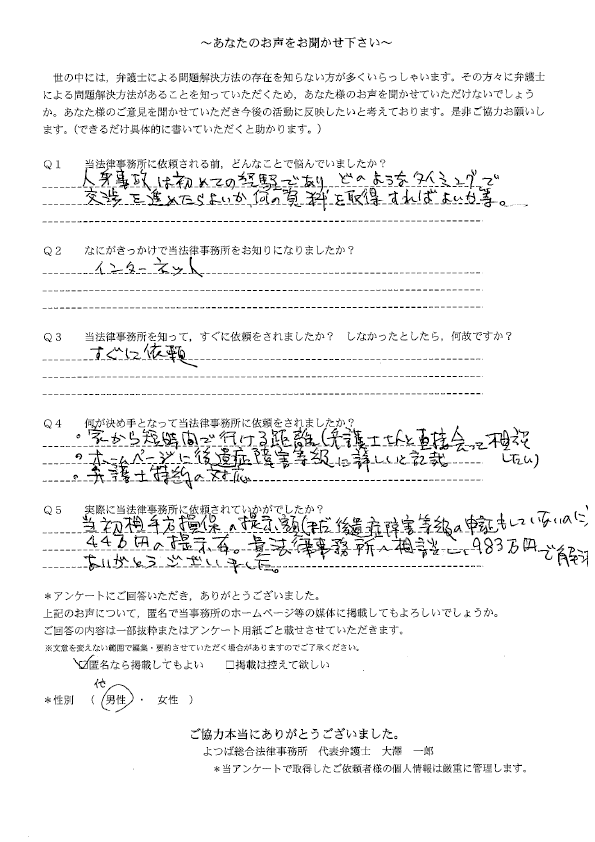 ～あなたのお声をお聞かせ下さい～
世の中には，弁護士による問題解決方法の存在を知らない方が多くいらっしゃいます。その方々に弁護士
による問題解決方法があることを知っていただくため，あなた様のお声を聞かせていただけないでしょう
か。あなた様のご意見を聞かせていただき今後の活動に反映したいと考えております。是非ご協力お願いし
ます。（できるだけ具体的に書いていただくと助かります。）
Ｑ１　当法律事務所に依頼される前，どんなことで悩んでいましたか？
人身事故は初めての経験であり，どのようなタイミングで
交渉を進めたらよいか，何の資料を取得すればよいか等。
Ｑ２　なにがきっかけで当法律事務所をお知りになりましたか？
インターネット
Ｑ３　当法律事務所を知って，すぐに依頼をされましたか？　しなかったとしたら，何故ですか？
すぐに依頼
Ｑ４　何が決め手となって当法律事務所に依頼をされましたか？
・家から短時間で行ける距離（弁護士さんと直接会って相談
したい）
・ホームページに後遺症障害等級に詳しいと記載
・弁護士特約の対応
Ｑ５　実際に当法律事務所に依頼されていかがでしたか？
当初相手方損保の提示額（まだ後遺症障害等級の申請もしていないのに）
44万円の提示有。貴法律事務所へ相談し，983万円で解決
ありがとうございました。
＊アンケートにご回答いただき，ありがとうございました。
上記のお声について，匿名で当事務所のホームページ等の媒体に掲載してもよろしいでしょうか。
ご回答の内容は一部抜粋またはアンケート用紙ごと載せさせていただきます。
※文意を変えない範囲で編集・要約させていただく場合がありますのでご了承ください。
☑匿名なら掲載してもよい　□掲載は控えて欲しい
代
＊性別　（　男性　・　女性　）
ご協力本当にありがとうございました。
よつば総合法律事務所　代表弁護士　大澤　一郎
＊当アンケートで取得したご依頼者様の個人情報は厳重に管理します。